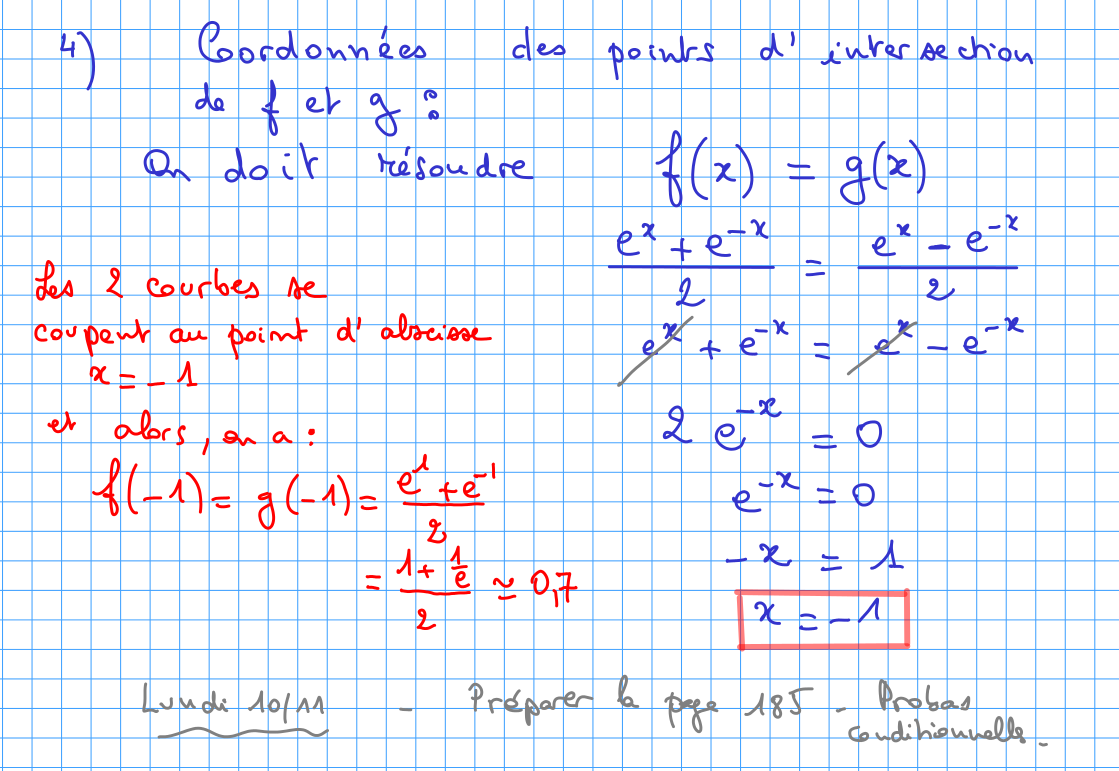 4) Coordonnées des points d'intersection
de f et g :
On doit résoudre f(x) = g(x)
(e^x + e^-x)/2 = (e^x - e^-x)/2
e^x + e^-x = e^x - e^-x
2 e^-x = 0
e^-x = 0
-x = 1
x = -1
Les 2 courbes se
coupent au point d'abscisse
x = -1
et alors, on a :
f(-1) = g(-1) = (e^1 + e^-1)/2
= (1 + 1/e)/2 ≃ 0,7
Lundi 10/11 - Préparer la page 185 - Probas
conditionnelles.